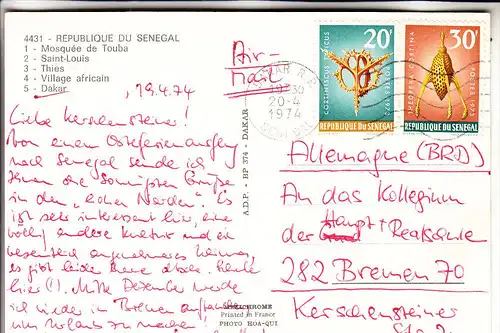 4431 - REPUBLIQUE DU SENEGAL
1 - Mosquée de Touba
2 - Saint-Louis
3 - Thies
4 - Village africain
5 - Dakar
19.4.74
Air-
mail
20F
30F
POSTES 1973
REPUBLIQUE DU SENEGAL
REPUBLIQUE DU SENEGAL
DAKAR R.P.
20-4
1974
Liebe Kerschensteiner!
Von einem Osterferienausflug
nach Senegal sende ich
Ihnen die sonnigsten Grüße
in den „hohen Norden". Es
ist sehr interessant hier, eine
völlig andere Kultur und ein
wesentlich angenehmeres Klima,
es gibt leider keine
hier (!). Mitte Dezember werde
ich wieder in Bremen auftauchen
um Urlaub zu machen
A.D.P. - BP 374 - DAKAR
Allemagne (BRD)
An das Kollegium
der Haupt + Realschule
282 Bremen 70
Kerschensteiner
Printed in France
PHOTO HOA-QUI